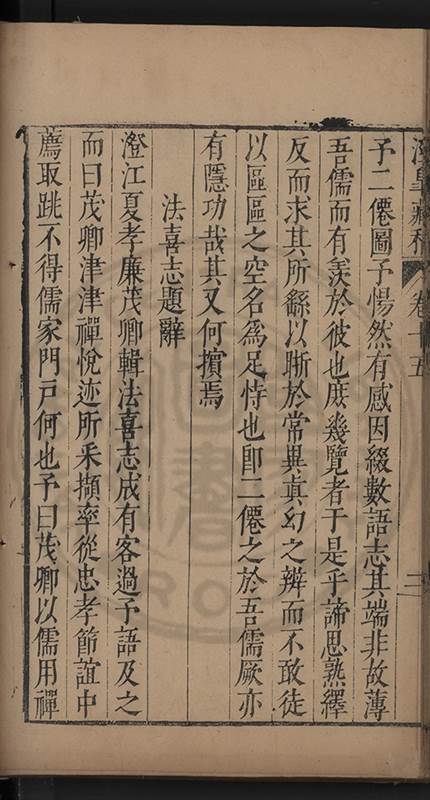 涇臯藏稿 卷十五 二
予二僊圖予惕然有感因綴數語志其端非故薄
吾儒而有羨於彼也庶幾覽者于是乎諦思熟繹
反而求其所繇以晣於常異真幻之辨而不敢徒
以區區之空名爲足恃也卽二僊之於吾儒厥亦
有隱功哉其又何擯焉
法喜志題辭
澄江夏孝廉茂卿輯法喜志成有客過予語及之
而曰茂卿津津禪悅迹所采擷率從忠孝節誼中
薦取跳不得儒家門戸何也予曰茂卿以儒用禪